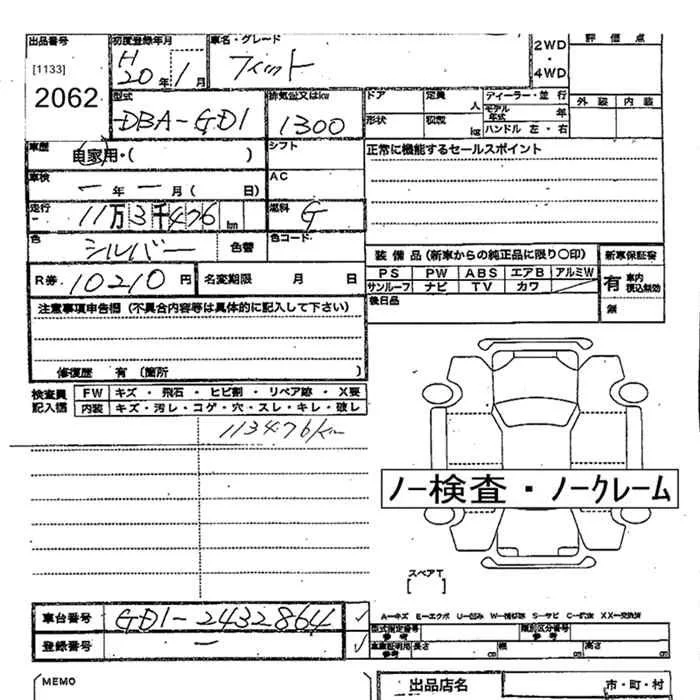 出品番号 初度登録年月 車名・グレード 評価点
[1133] H20年1月 フィット 2WD・4WD
2062
型式 排気量又はkw ドア 定員 人 ディーラー・並行 外装 内装
DBA-GD1 1300 形状 積載 kg モデル年式 年
ハンドル 左・右
車歴 自家用・( ) シフト 正常に機能するセールスポイント
車検 ー年ー月( 日) AC
走行 11万3千476km 燃料 G
色 シルバー 色替 色コード
装備品(新車からの純正品に限り○印) 新車保証書
R券 10210円 名変期限 月 日 PS PW ABS エアB アルミW 有 車内 税込無効
サンルーフ ナビ TV カワ
注意事項申告欄(不具合内容等は具体的に記入して下さい) 後日品 無
修復歴 有 〔箇所 〕
検査員記入欄 FW キズ・飛石・ヒビ割・リペア跡・X要
内装 キズ・汚レ・コゲ・穴・スレ・キレ・破レ
113476km
ノー検査・ノークレーム
スペアT
[ ]
車台番号 GD1-2432864 ✓
A−キズ E−エクボ U−凹み W−補修跡 S−サビ C−腐食 XX−交換済
型式指定番号 参考 類別区分番号 参考
登録番号 ー ✓ 車庫証明用 参考 長さ cm 幅 cm 高さ cm
MEMO 出品店名 市・町・村